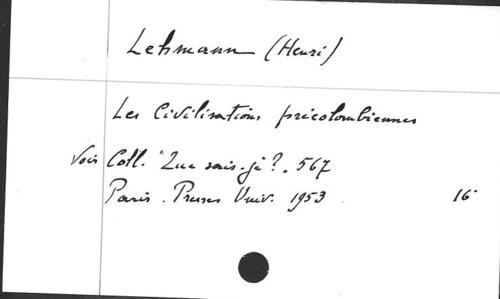 Lehmann (Henri)
Les Civilisations précolombiennes
Voir Coll. "Que sais-je?" 567
Paris. Presses Univ. 1953 16°